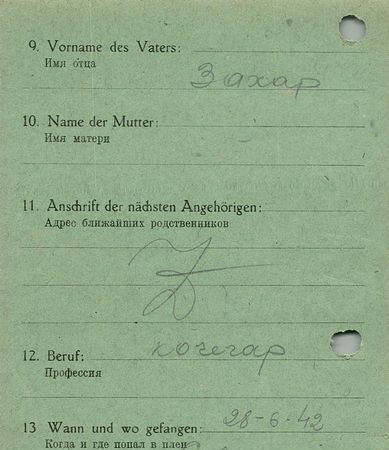 9. Vorname des Vaters:
Имя отца
Захар
10. Name der Mutter:
Имя матери
-
11. Anschrift der nächsten Angehörigen:
Адрес ближайших родственников
12. Beruf: кочегар
Профессия
13 Wann und wo gefangen: 28-6-42
Когда и где попал в плен